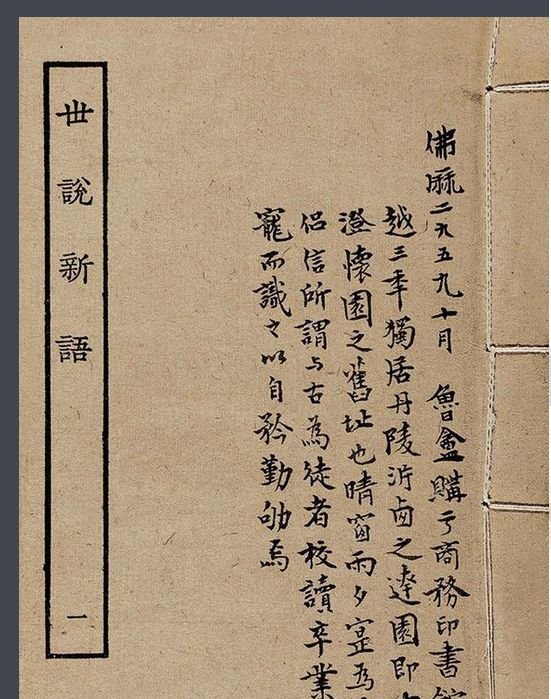 佛厤二九五九十月 魯盦購于商務印書館
越三秊獨居丹陵沜卥之達園即
澄懷園之舊址也晴窗雨夕寔為
侣信所謂与古為徒者校讀卒業
寵而識之以自矜勤劬焉
世說新語 一